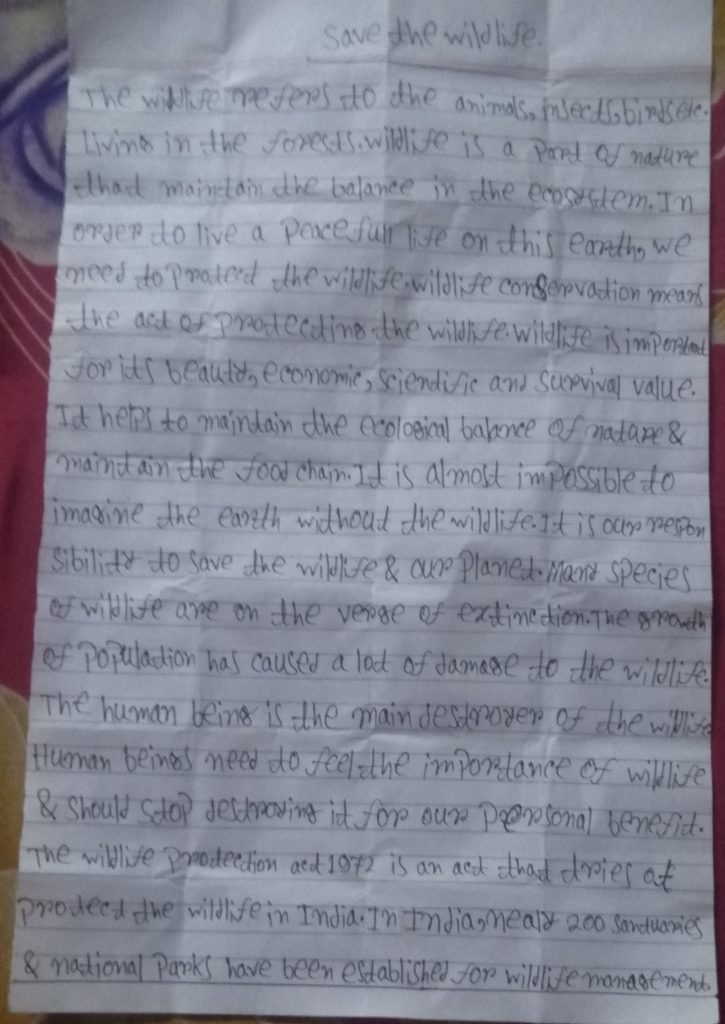 Save the wildlife.
The wildlife refers to the animals, insects, birds etc.
living in the forests. wildlife is a part of nature
that maintain the balance in the ecosystem. In
order to live a peacefull life on this earth, we
need to protect the wildlife. wildlife conservation means
the act of protecting the wildlife. wildlife is important
for its beauty, economic, scientific and survival value.
It helps to maintain the ecological balance of nature &
maintain the food chain. It is almost impossible to
imagine the earth without the wildlife. It is our respon
sibility to save the wildlife & our planet. Many species
of wildlife are on the verge of extinction. The growth
of population has caused a lot of damage to the wildlife.
The human being is the main destroyer of the wildlife
Human beings need to feel the importance of wildlife
& should stop destroying it for our personal benefit.
The wildlife protection act 1972 is an act that tries at
protect the wildlife in India. In India, nearly 200 sanctuaries
& national parks have been established for wildlife management.